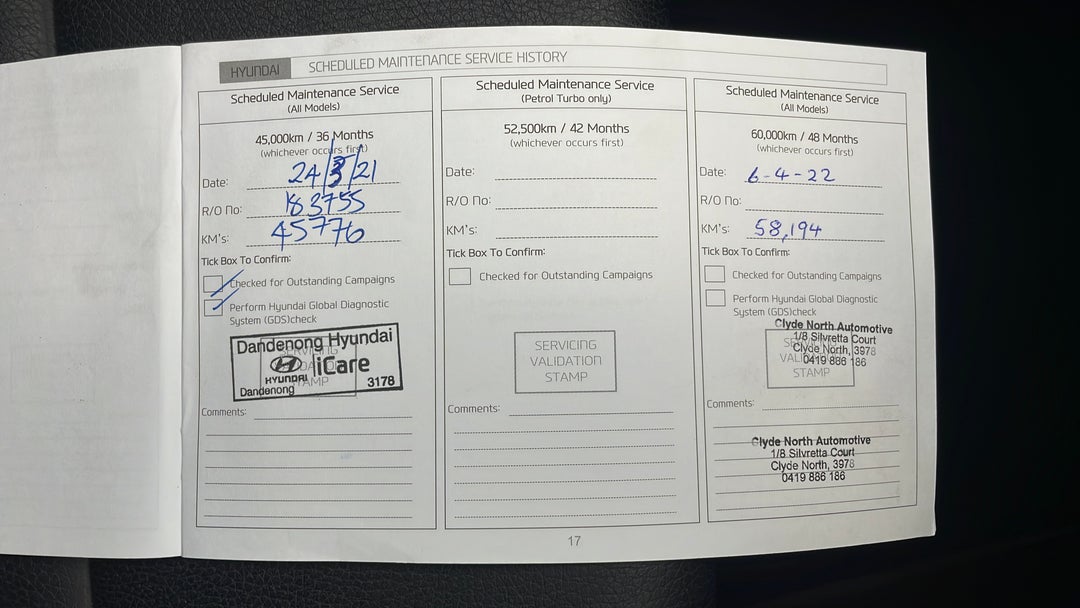 HYUNDAI SCHEDULED MAINTENANCE SERVICE HISTORY
Scheduled Maintenance Service
(All Models)
45,000km / 36 Months
(whichever occurs first)
Date: 24/3/21
R/O No: 183755
KM's: 45776
Tick Box To Confirm:
Checked for Outstanding Campaigns
Perform Hyundai Global Diagnostic
System (GDS)check
SERVICING
STAMP
Dandenong Hyundai
HYUNDAI iCare
Dandenong 3178
Comments:
Scheduled Maintenance Service
(Petrol Turbo only)
52,500km / 42 Months
(whichever occurs first)
Date:
R/O No:
KM's:
Tick Box To Confirm:
Checked for Outstanding Campaigns
SERVICING
VALIDATION
STAMP
Comments:
Scheduled Maintenance Service
(All Models)
60,000km / 48 Months
(whichever occurs first)
Date: 6-4-22
R/O No:
KM's: 58,194
Tick Box To Confirm:
Checked for Outstanding Campaigns
Perform Hyundai Global Diagnostic
System (GDS)check
Clyde North Automotive
1/8 Silvretta Court
Clyde North, 3978
0419 886 186
STAMP
Comments:
Clyde North Automotive
1/8 Silvretta Court
Clyde North, 3978
0419 886 186
17